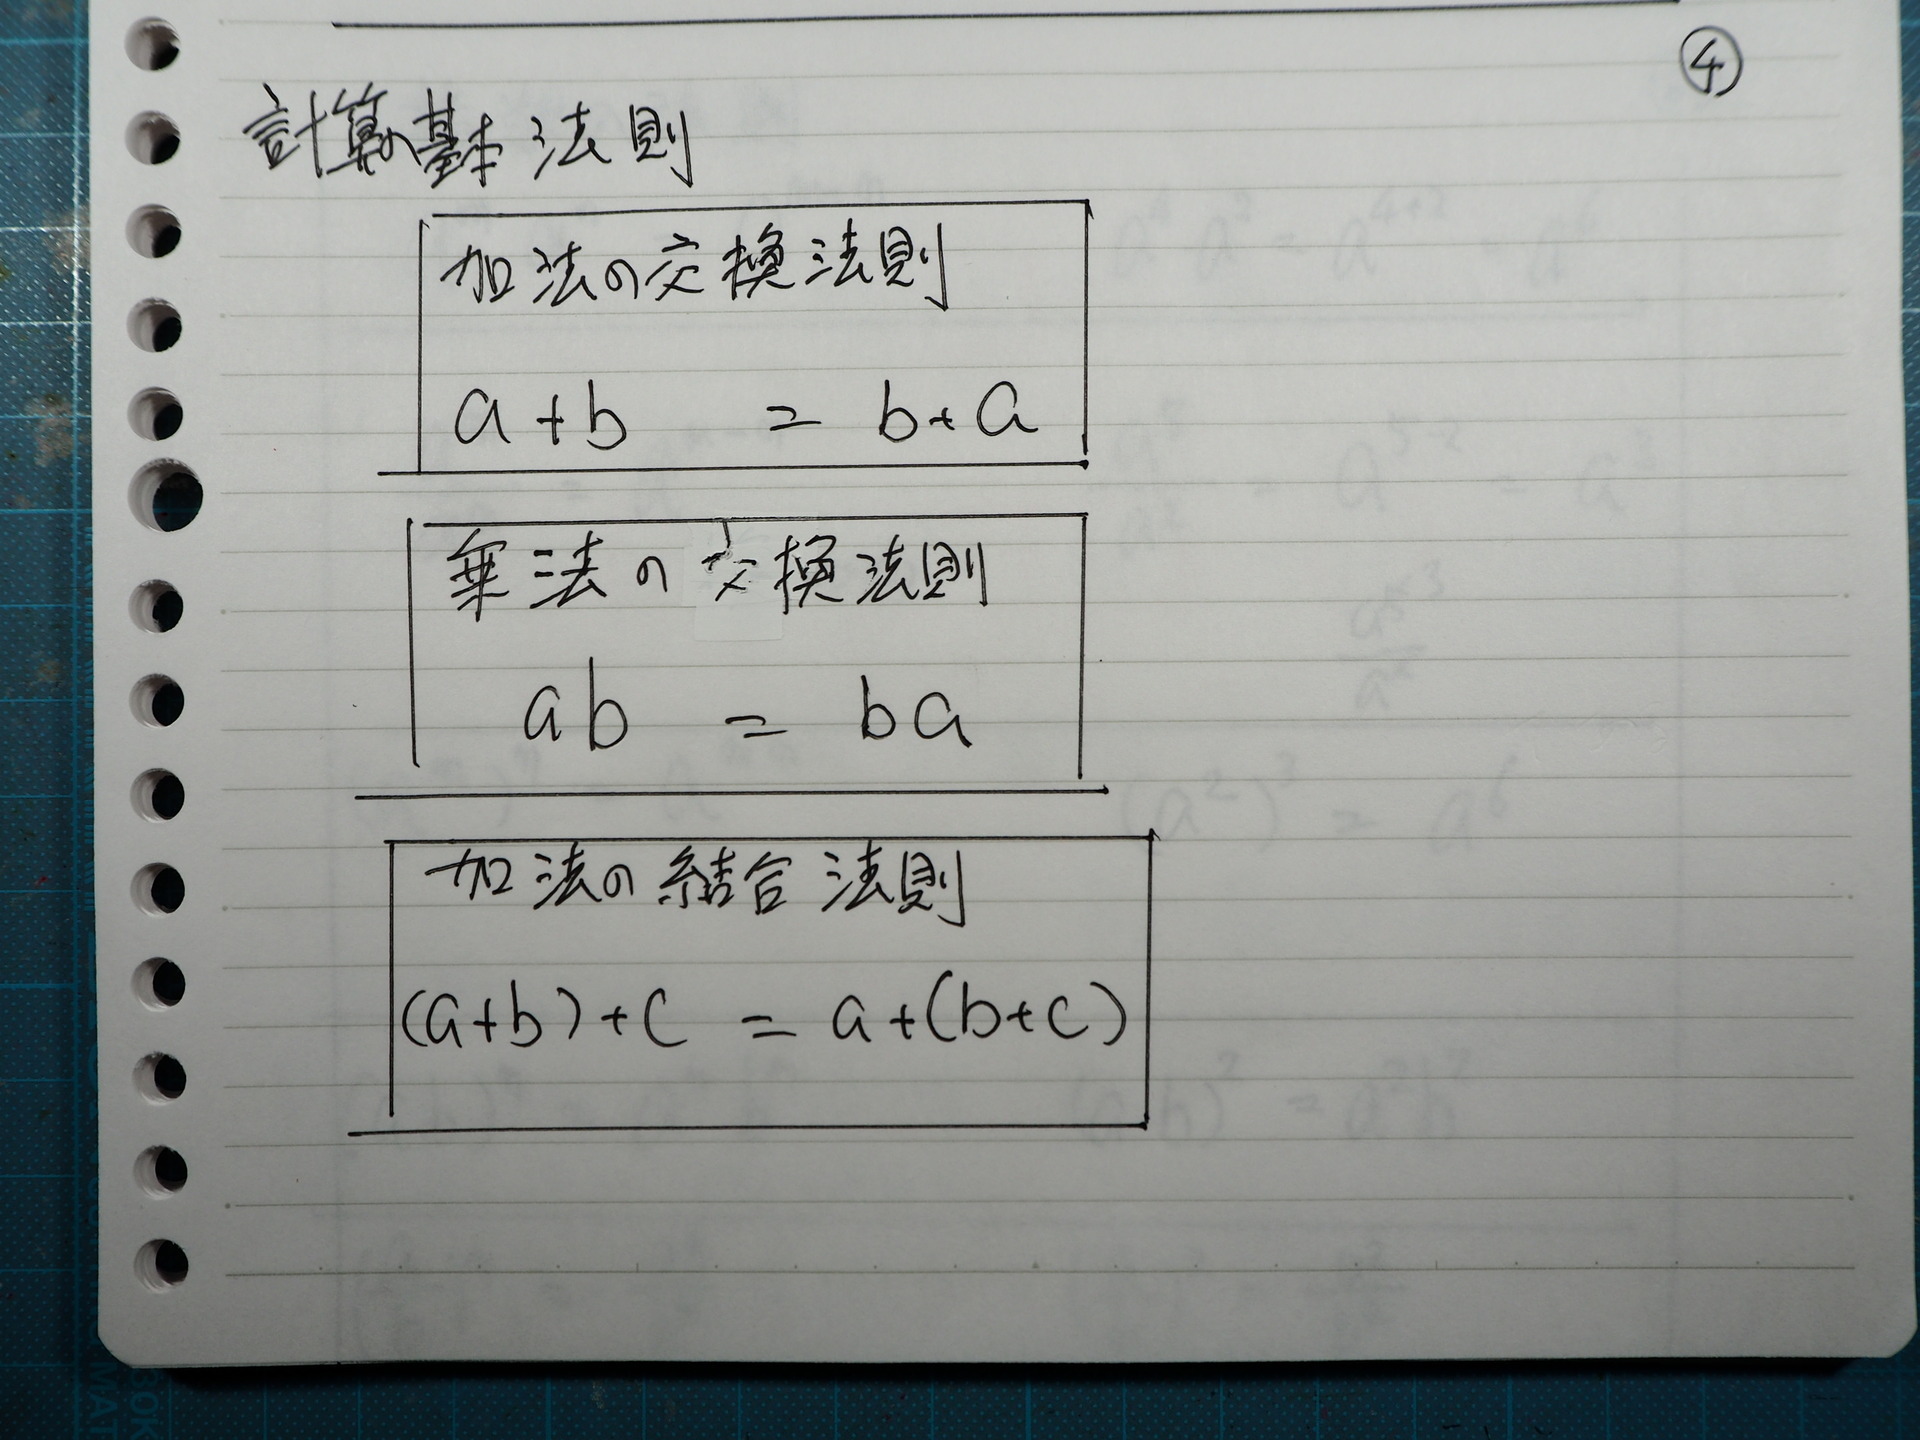 ④
計算の基本法則
加法の交換法則
a+b = b+a
乗法の交換法則
ab = ba
加法の結合法則
(a+b)+c = a+(b+c)